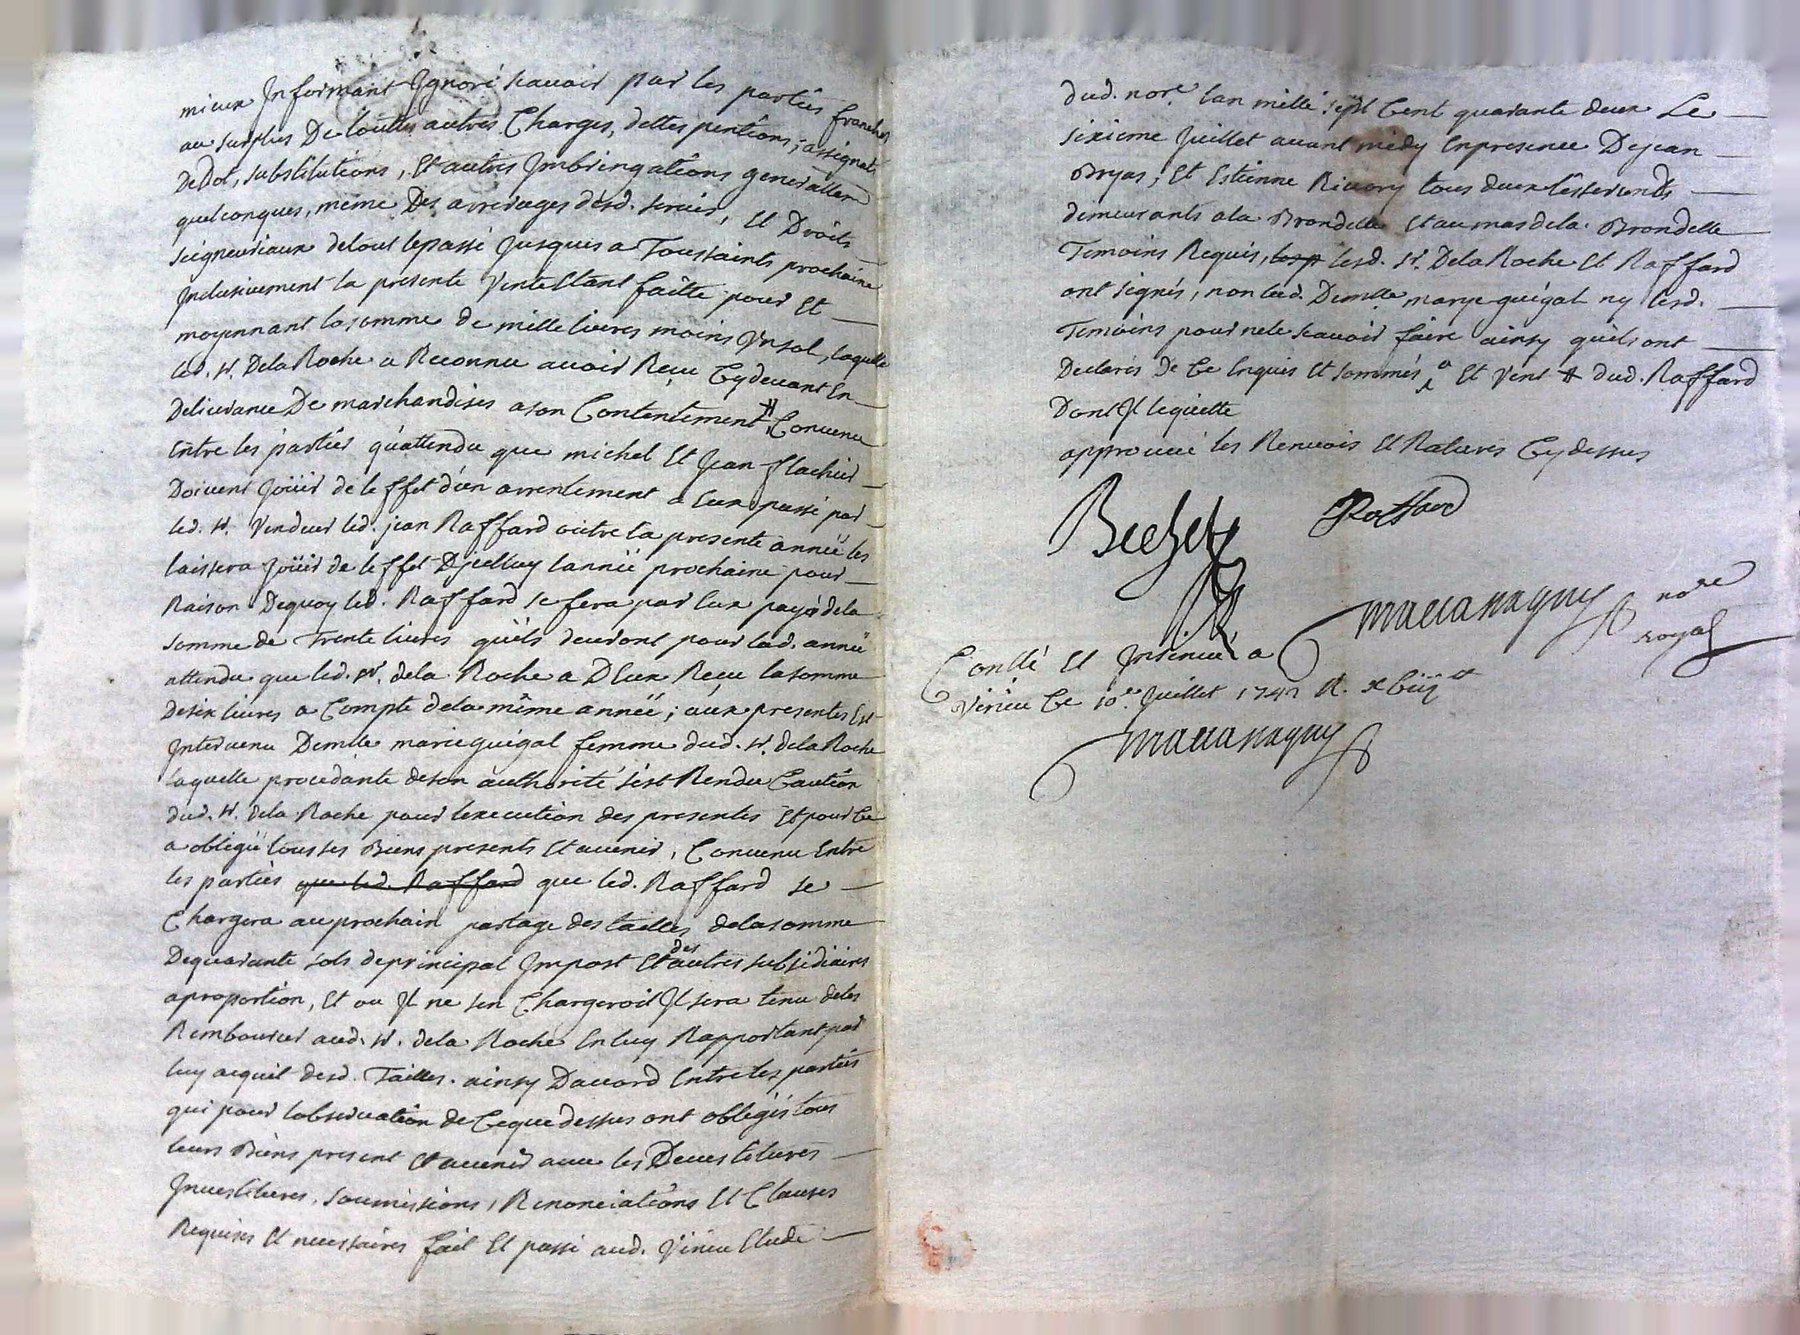 mieux Informant Ignoré scauoir par les partiês franches
au surplus De touttes autres Charges, dettes pentions, assignats
De Dot, substitutions, Et autres Imbringations generallem
quelconques, même Des arrerages desd. seruis, Et Droits
seigneuriaux detout lepassé Jusques a Toussaints prochaine
Inclusiuement la presente Vente Etant faitte pour Et
moyennant la somme de mille liures moins Vn sol, laquelle
led. sr. Dela Roche a Reconnu auoir Reçu Cy deuant En
Deliurance De marchandises a son Contentement # Conuenu
Entre les partiês qu'attendu que michel Et Jean flachier
Doiuent Joüir de leffet d'un arrentement a Eux passé par
led. sr. Vendeur led. jean Raffard outre la presente année les
laissera Joüir de leffet D'jcelluy lannée prochaine pour
Raison Dequoy led. Raffard se fera par Eux payé dela
somme de Trente liures qu'ils deuront pour lad. année
attendu que led. sr. dela Roche a D'Eux Reçu la somme
De six liures a Compte dela même année; aux presentes Est
Interuenu Demlle marie guigal femme dud. sr. dela Roche
laquelle procedante deson authorité s'est Rendu Caution
dud. sr. dela Roche pour lexecution des presentes Et pour Ce
a obligé tous ses Biens presents Et auenir, Conuenu Entre
les partiês que led. Raffard que led. Raffard se
Chargera au prochain partage des tailles dela somme
De quarante sols de principal Impost Et des autres subsidiaires
a proportion, Et ou Il ne s'en Chargeroit Il sera tenu deles
Rembourser aud. sr. dela Roche En luy Rapportant par
luy acquit desd. Tailles. ainsy D'accord Entre les partiês
qui pour lobseruation de Ceque dessus ont obligés tous
leurs Biens present Et auenir auec les Deuestitures
Inuestitures, soumissions, Renonciations Et Clauses
Requises Et necessaires fait Et passé aud. Virieu Etude
dud. nore. lan mille sept Cent quarante deux Le
sixieme Juillet auant midy En presence De jean
Bryas, Et Estienne Riuory tous deux
demeurants a la Brondelle Et au mas de la Brondelle
Temoins Requis, lesd. sr. Dela Roche Et Raffard
ont signés, non lad. Demlle marye guigal ny lesd.
Temoins pour ne le scauoir faire ainsy qu'ils ont
Declarés De Ce Enquis Et sommés Et Vent # dud. Raffard
Dont Il le quitte
approuué les Renuois Et Ratures Cy dessus
Bechet Raffard
Mauanagny nore
royal
Conllé Et Insinué a
Virieu Ce 10e. Juillet 1742 R.
Mauanagny